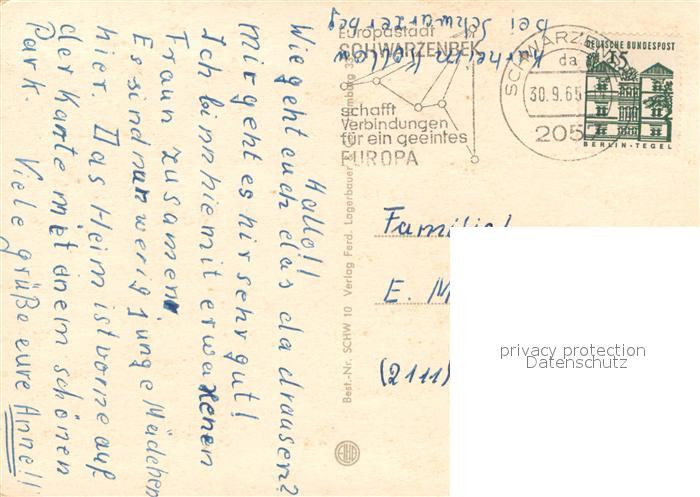 Kurheim Kollow
bei Schwarzenbeg
Hallo!!
Wie geht euch das da drausen?
mir geht es hir sehr gut!
Ich bin hie mit erwaxenen
Fraun zusamen.
Es sind nur wenig junge Mädchen
hier. Das Heim ist vorne auf
der Karte mit dneim schönen
Park.
Viele grüße eure Anne!!
Europastadt
SCHWARZENBEK
schafft
Verbindungen
für ein geeintes
EUROPA
SCHWARZENBEK
da
30.9.65
2057
DEUTSCHE BUNDESPOST
15
BERLIN-TEGEL
Best.-Nr. SCHW 10 Verlag Ferd. Lagerbauer
Familie
E. M
(2111)
privacy protection
Datenschutz